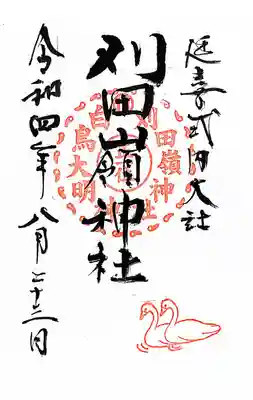 延喜式内大社
刈田嶺神社
令和四年八月二十三日
刈田嶺神社
白鳥大明